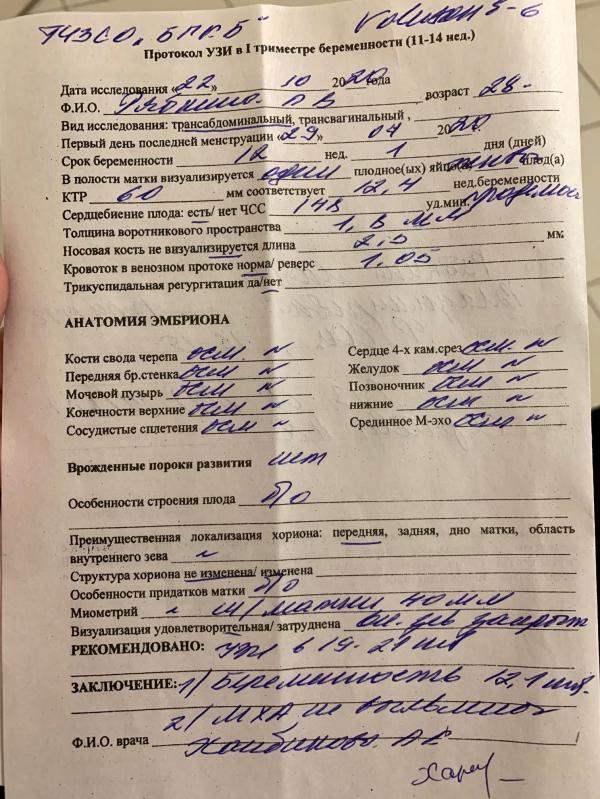 ГУЗСО "БПКБ" Voluson S-6
Протокол УЗИ в I триместре беременности (11-14 нед.)
Дата исследования «22» 10 2020 года
Ф.И.О. возраст 28
Вид исследования: трансабдоминальный, трансвагинальный,
Первый день последней менструации «29» 07 2020
Срок беременности 12 нед. 1 дня (дней)
В полости матки визуализируется один плодное(ых) яйцо(а) плод(а)
КТР 60 мм соответствует 12,4 нед.беременности
Сердцебиение плода: есть/ нет ЧСС 148 уд.мин.
Толщина воротникового пространства 1,8 мм
Носовая кость не визуализируется длина 2,5 мм
Кровоток в венозном протоке норма/ реверс 1.05
Трикуспидальная регургитация да/нет
АНАТОМИЯ ЭМБРИОНА
Кости свода черепа осм. N Сердце 4-х кам.срез осм. N
Передняя бр.стенка осм N Желудок осм N
Мочевой пузырь осм N Позвоночник осм N
Конечности верхние осм. N нижние осм N
Сосудистые сплетения осм. N Срединное М-эхо осм N
Врожденные пороки развития нет
Особенности строения плода б/о
Преимущественная локализация хориона: передняя, задняя, дно матки, область
внутреннего зева N
Структура хориона не изменена/ изменена
Особенности придатков матки б/о
Миометрий N ш/матки 40 мм
Визуализация удовлетворительная/ затруднена вн. зев закрыт
РЕКОМЕНДОВАНО: УЗИ в 19-21 нед
ЗАКЛЮЧЕНИЕ: 1/ Беременность 12,1 нед.
2/ МХА не выявлено
Ф.И.О. врача